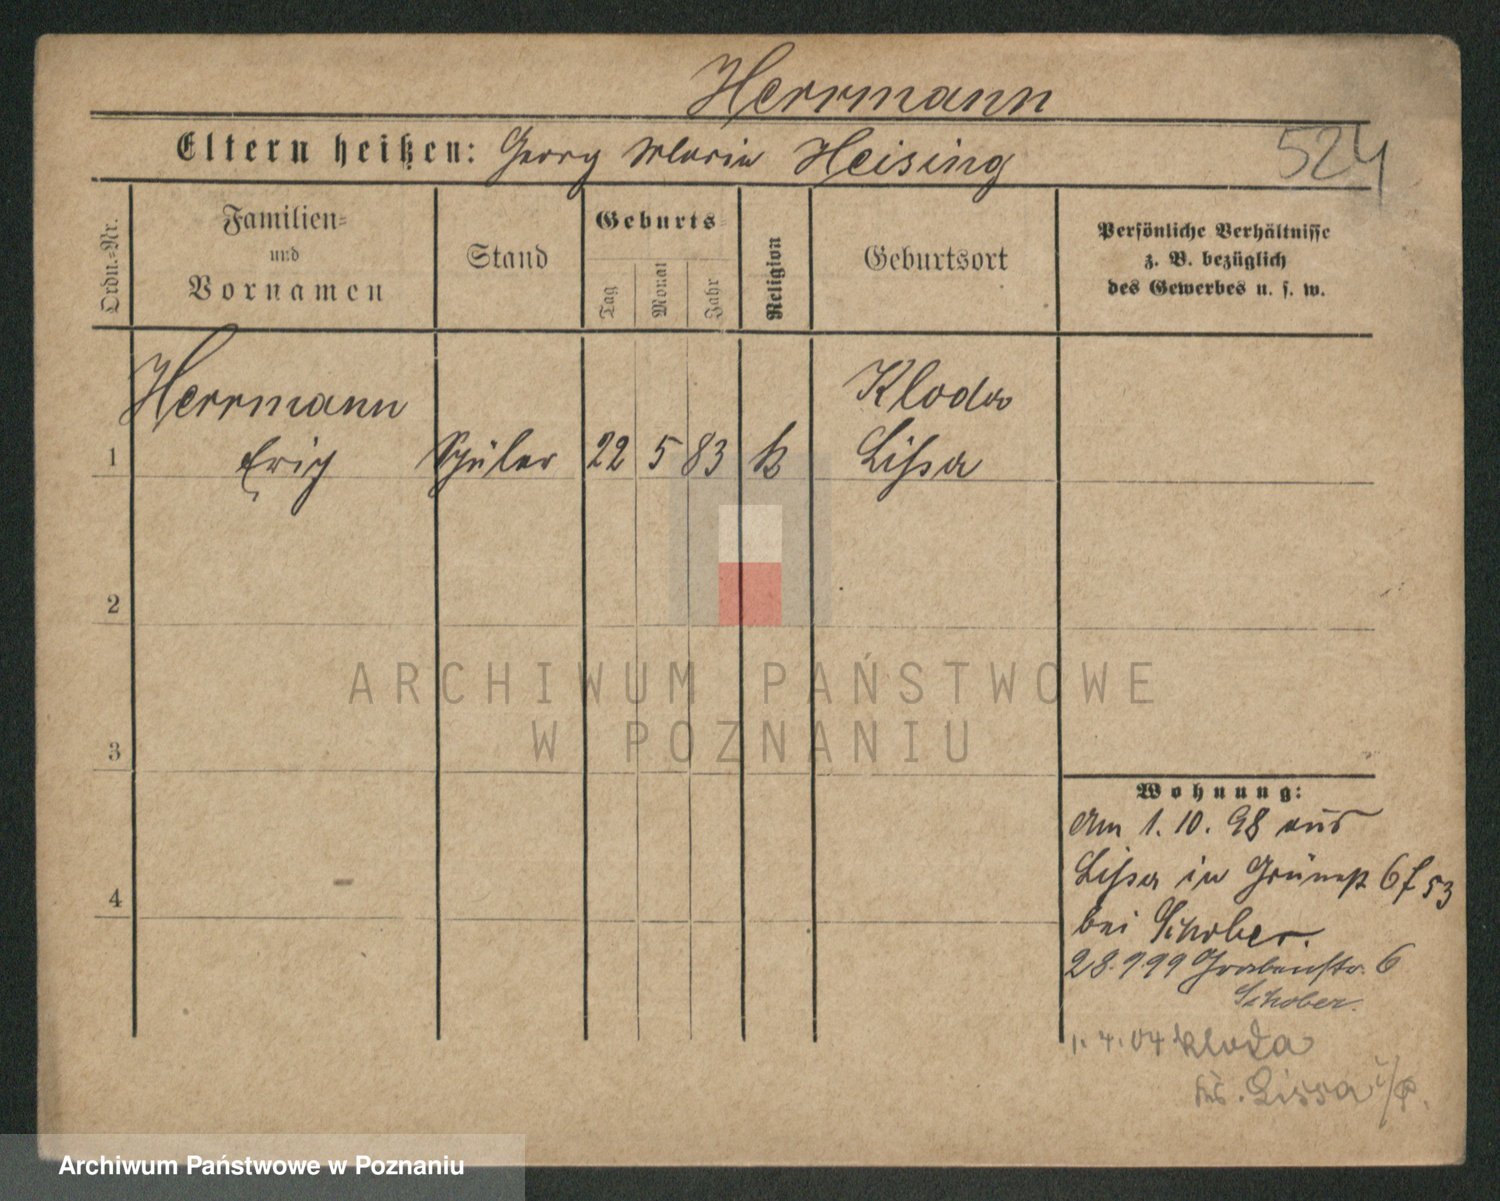 Herrmann
Eltern heißen: Georg Maria Heising
524
Ordn.-Nr.
Familien-
und
Vornamen
Stand
Geburts-
Tag
Monat
Jahr
Religion
Geburtsort
Persönliche Verhältnisse
z. B. bezüglich
des Gewerbes u. s. w.
Herrmann
Kloda
1 Erich Schüler 22 5 83 k Lissa
2
ARCHIWUM PAŃSTWOWE
W POZNANIU
3
Wohnung:
Am 1. 10. 98 aus
Lissa in Grünestr 6 f 53
4
bei Schober.
28.9.99 Grabenstr. 6
Schober.
1. 4. 04 Kloda
Lissa i/P.
Archiwum Państwowe w Poznaniu